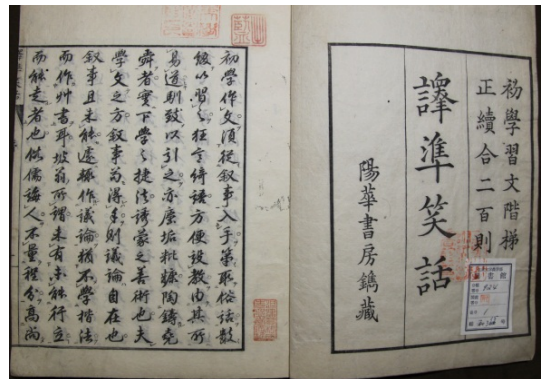 初學習文階梯
正續合二百則
譯準笑話
陽華書房鐫藏
初學作文須從叙事入手第取俗話數
條以習之狂言綺語方便設教由其所
易道馴致以引之亦塵垢粃糠陶鑄堯
舜者實下學之捷法誘蒙之善術也夫
學文之方叙事為得則議論自在也
叙事且未能遽作議論猶不學楷法
而作艸書耳坡翁所謂未有未能行立
而能走者也儒誨人不量程分高尚